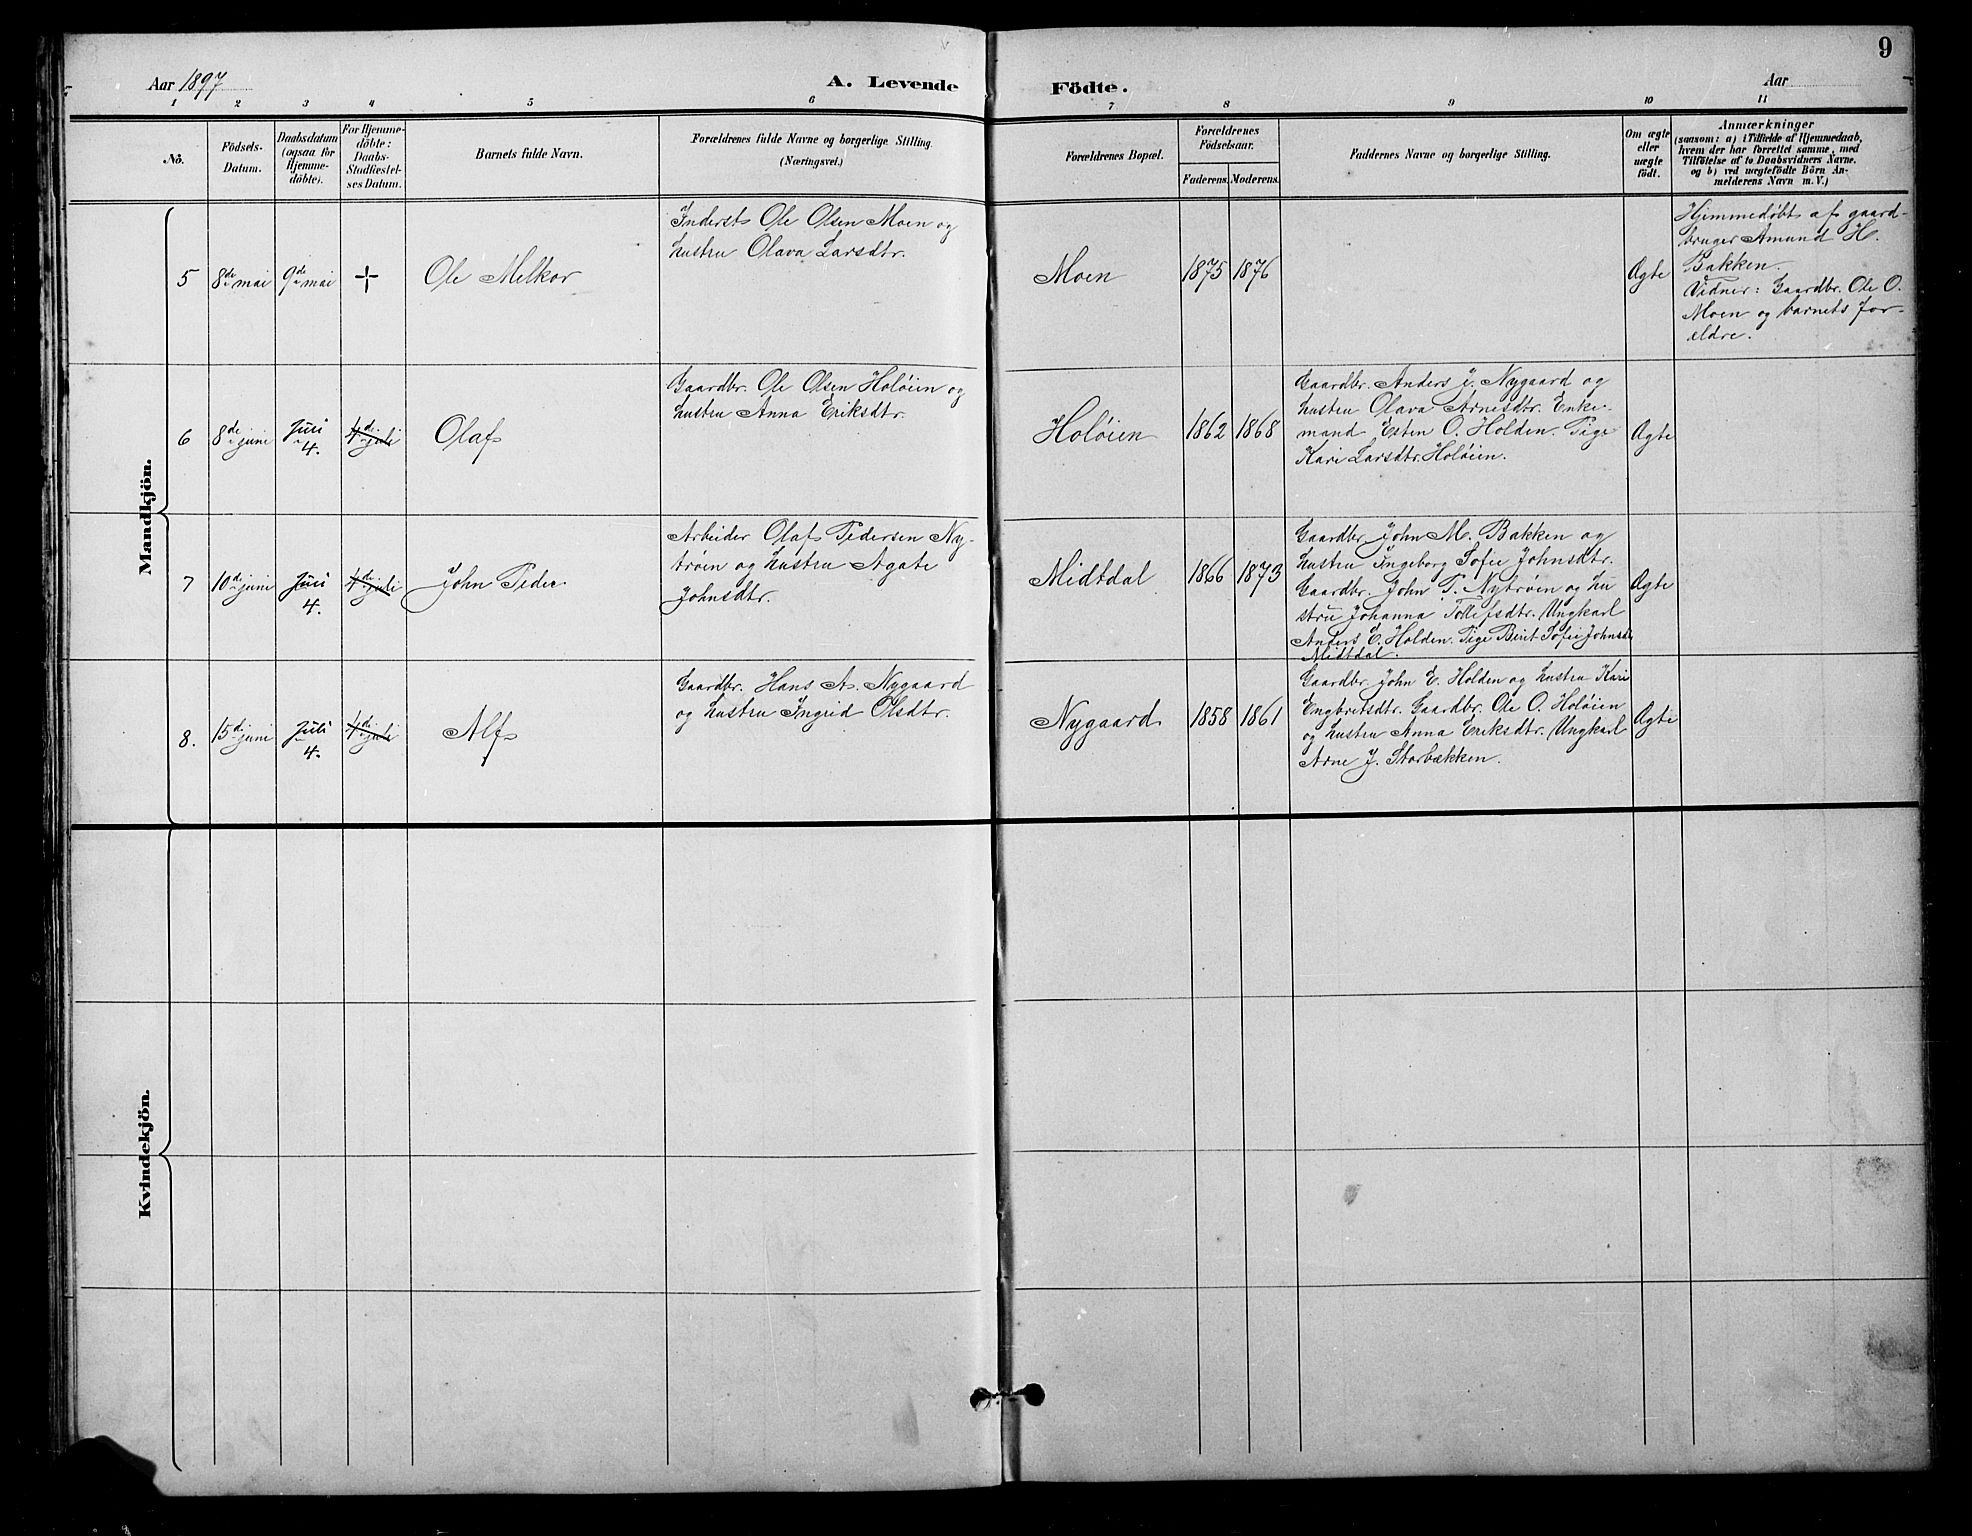 9
Aar 1897
A. Levende
Födte.
Aar
1 2 3 4 5 6 7 8 9 10 11
No.
Födsels-
Datum.
Daabsdatum
(ogsaa for
Hjemme-
döbte).
For Hjemme-
döbte:
Daabs-
Stadfæstel-
ses Datum.
Barnets fulde Navn.
Forældrenes fulde Navne og borgerlige Stilling.
(Næringsvei.)
Forældrenes Bopæl.
Forældrenes
Födselsaar.
Faderens. Moderens.
Faddernes Navne og borgerlige Stilling.
Om ægte
eller
uægte
födt.
Anmærkninger
(saasom: a) i Tilfælde af Hjemmedaab,
hvem der har forrettet samme, med
Tilföielse af to Daabsvidners Navne,
og b) ved uægtefödte Börn An-
melderens Navn m. V.)
Mandkjön.
5
8de mai
9de mai
+
Ole Melkor
Inderst Ole Olsen Moen og
hustru Olava Larsdtr.
Moen
1875
1876
Ægte
Hjemmedøbt af gaard-
bruger Amund H.
Bakken.
Vidner: Gaardbr. Ole O.
Moen og barnets for-
ældre.
6
8de juni
Juli
4.
4de juli
Olaf
Gaardbr. Ole Olsen Holøien og
hustru Anna Eriksdtr.
Holøien
1862
1868
Gaardbr. Anders J. Nygaard og
hustru Olava Arnesdtr. Enke-
mand Esten O. Holden. Pige
Kari Larsdtr. Holøien.
Ægte
7
10de juni
Juli
4.
4de juli
John Peder
Arbeider Olaf Pedersen Ny-
trøen og hustru Agate
Johnsdtr.
Midtdal
1866
1873
Gaardbr. John M. Bakken og
hustru Ingeborg Sofie Johnsdtr.
Gaardbr. John P. Nytrøen og hu
stru Johanna Tollefsdtr. Ungkarl
Anders E. Holden. Pige Berit Sofie Johnsdtr
Midtdal.
Ægte
8.
15de juni
Juli
4.
4de juli
Alf
Gaardbr. Hans A. Nygaard
og hustru Ingrid Olsdtr.
Nygaard
1858
1861
Gaardbr. John E. Holden og hustru Kari
Engbretsdtr. Gaardbr. Ole O. Holøien
og hustru Anna Eriksdtr. Ungkarl
Arne J. Storbækken.
Ægte
Kvindekjön.